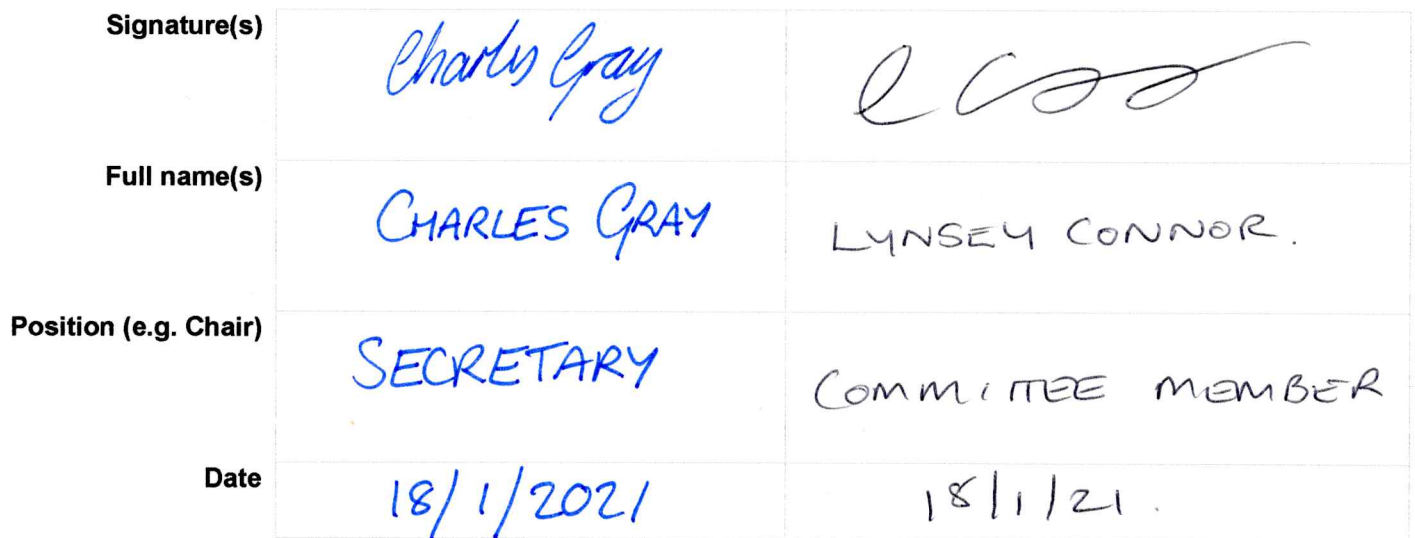 Signature(s) Charles Gray
Full name(s) CHARLES GRAY LYNSEY CONNOR.
Position (e.g. Chair) SECRETARY COMMITTEE MEMBER
Date 18/1/2021 18/1/21.